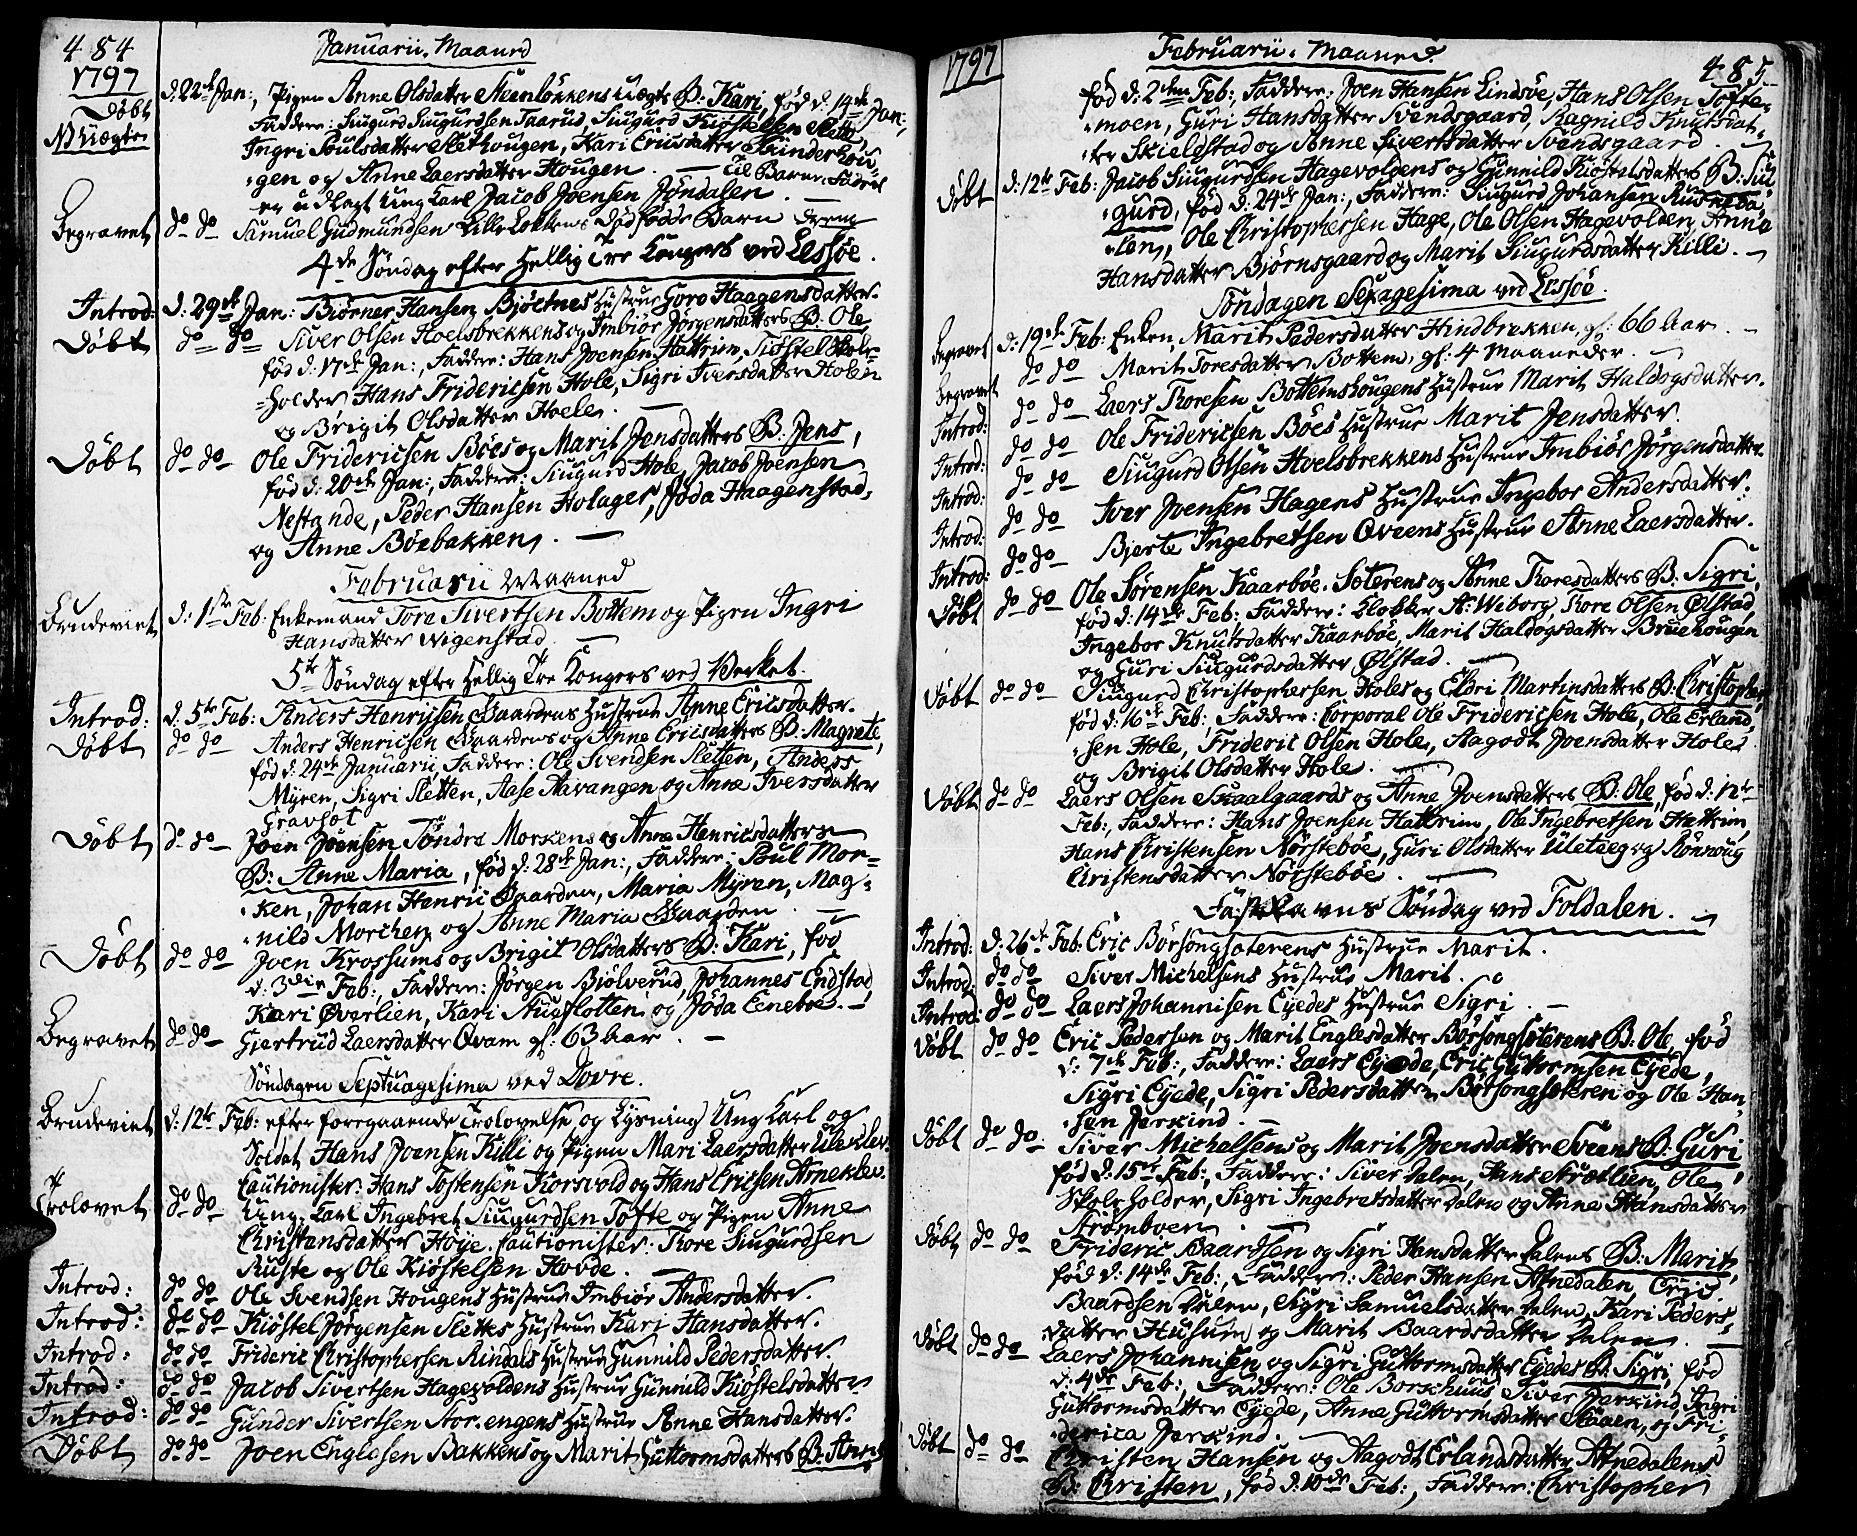 484
Januarii Maaned
1797
Døbt
NB Uægte
d. 22de Jan:, Pigen Anne Olsdatter Steenløkkens uægte B: Kari, fød d. 14de Jan:,
Faddere: Siugurd Siugurdsen Taarud, Siugurd Kiøstelsen Slette,
Ingri Poulsdatter Slethougen, Kari
gen og Anne Laersdatter Hougen. Til Barne-Fader
er udlagt Ung Karl Jacob Joensen Jøndalen.
Begravet do do Samuel Gudmundsen Lille Løkkens dødfødde Barn
4de Søndag efter Hellig Tre Kongers ved Lessøe.
Introd: d. 29de Jan: Biørner Hansen Bjøltnes Hustrue Goro Haagensdatter.
Døbt do do Siver Olsen Hoelsbrekkens og Imbiør Jørgensdatters B: Ole,
fød d. 17de Jan:, Faddere: Hans Joensen Hattrim, Skole-
holder Hans Fridericsen Hole, Sigri Iversdatter Holen
og Brigit Olsdatter Hoele.
Døbt do do Ole Fridericsen Böes og Marit Jensdatters B: Jens,
fød d. 20de Jan:, Faddere: Siugurd Hole, Jacob Joensen
Nestande, Peder Hansen Holager, Jøda Haagenstad,
og Anne Böebakken.
Februarii Maaned
Brudeviet d: 1ste Feb: Enkemand Tore Sivertsen Bottem og Pigen Ingri
Hansdatter Wigenstad.
5te Søndag efter Hellig Tre Kongers ved Verket.
Introd: d. 5te Feb: Anders Henrijsen Gaardens Hustrue Anne Ericsdatter.
Døbt do do Anders Henricsen Gaardens og Anne Ericsdatters B: Magrete,
fød d. 24de Januarii, Faddere: Ole Svendsen Sletten, Anders
Myren, Sigri Sletten, Aase Aavangen og Anne Iversdatter
Døbt do do Joen Joensen Søndre Morkens og Anne Henricsdatters
B: Anne Maria, fød d. 28de Jan:, Faddere: Poul Mor-
ken, Johan Henric Gaarden, Maria Myren, Mag-
nild Morchen og Anne Maria Gaarden.
Døbt do do Joen Krossums og Brigit Olsdatters B: Kari, fød
d. 3die Feb:, Faddere: Jørgen Bjølverud, Johannes Endstad,
Kari Øverlien, Kari Augslotten og Jøda Eneboe.
Begravet do do Giertrud Laersdatter Qvam gl: 63 Aar.
Søndagen Septuagesima ved Dovre.
Brudeviet d: 12te Feb: efter foregaaende Trolovelse og Lysning Ung Karl og
Soldat Hans Joensen Killi og Pigen Mari Laersdatter
Cautionister: Hans Tostensen Korsvold og Hans Ericsen Arneklev.
Trolovet do do Ung Karl Ingebret Siugurdsen Tofte og Pigen Anne
Christansdatter Hoye. Cautionister: Tore Siugurdsen
Ruste og Ole Kiøstelsen Hovde.
Introd: do do Ole Svendsen Hougens Hustrue Imbiør Andersdatter.
Introd: do do Kiøstel Jørgensen Slettes Hustrue Kari Hansdatter.
Introd: do do Frideric Christophersen Rindals Hustrue Gunnild Pedersdatter.
Introd: do do Jacob Sivertsen Hagevoldens Hustrue Gunnild Kiøstelsdatter
Introd: do do Gunder Sivertsen Storengens Hustrue Anne Hansdatter.
Døbt do do Joen Englesen Bakkens og Marit Guttormsdatters B: Anne
1797
Februarii Maaned.
485
fød d: 2den Feb:, Faddere: Joen Hansen Lindsøe, Hans Olsen Tofte-
moen, Guri Hansdatter Svendsgaard, Ragnild Knutsdat-
ter Skieldstad og Anne Sivertsdatter Svendsgaard.
Døbt d: 12te Feb: Jacob Siugurdsen Hagevoldens og Gunnild Kiøstelsdatters B: Siu-
gurd, fød d: 24de Jan:, Faddere: Siugurd Johansen
len, Ole Christophersen Hage, Ole Olsen Hagevolden, Anne
Hansdatter Bjørnsgaard og Marit Siugurdsdatter Killi.
Søndagen Sexagesima ved Lessøe.
Begravet d: 19de Feb: Enken Marit Pedersdatter Hindbrekken, gl: 66 Aar.
Begravet do do Marit Toresdatter Bottem, gl: 4 Maaneder.
Introd: do do Laers Thoresen Bottemshougens Hustrue Marit Haldogsdatter.
Introd: do do Ole Fridericsen Böes Hustrue Marit Jensdatter.
Introd: do do Siugurd Olsen Hoelsbrekkens Hustrue Imbiør Jørgensdatter
Introd: do do Iver Joensen Hagens Hustrue Ingebor Andersdatter.
Introd: do do Bjerte Ingebretsen Qveens Hustrue Anne Laersdatter.
Døbt do do Ole Sørensen Kaarbøe-Seterens og Anne Thoresdatters B: Sigri,
fød d: 14de Feb:, Faddere: Klokker A: Wiborg, Tore Olsen Ølstad,
Ingebor Knutsdatter Kaarbøe, Marit Haldogsdatter Bruehougen
og Guri Siugurdsdatter Ølstad.
Døbt do do Siugurd Christophersen Holes og Eldri Martinsdatters B: Christopher,
fød d: 16de Feb:, Faddere: Corporal Ole Fridericsen Hole, Ole Erland-
sen Hole, Frideric Olsen Hole, Aagodt Joensdatter Hole
og Brigit Olsdatter Hole.
Døbt do do Laers Olsen Skaalgaards og Anne Joensdatters B: Ole, fød d: 12te
Feb:, Faddere: Hans Joensen Hattrim, Ole Ingebretsen Hattrim,
Hans Christensen Nørstebøe, Guri Olsdatter Uleteeg og Rønnoug
Christensdatter Nørstebøe.
Fastelavns Søndag ved Foldalen.
Introd: d: 26de Feb: Eric Børsongseterens Hustrue Marit.
Introd: do do Siver Michelsens Hustrue Marit.
Introd: do do Laers Johannisen Eyedes Hustrue Sigri.
Døbt do do Eric Pedersen og Marit Englesdatter Børsongseterens B: Ole, fød
d: 7de Feb:, Faddere: Laers Eyede, Eric Guttormsen Eyede,
Sigri Eyede, Sigri Pedersdatter Børsongseteren og Ole Han-
sen Jerkind.
Døbt do do Siver Michelsens og Marit Joensdatter Sveens B: Guri
fød d: 15de Feb:, Faddere: Siver Dalen, Hans Krotlien, Ole
Skoleholder, Sigri Ingebretsdatter Dalen og Anne Hansdatter
Strømboen.
Døbt do do Frideric Baardsen og Sigri Hansdatter Dalens B: Marit,
fød d: 14de Feb:, Faddere: Peder Hansen Atnedalen, Eric
Baardsen Dalen, Sigri Samuelsdatter Dalen, Kari Peders-
datter Husum og Marit Baardsdatter Dalen.
Døbt do do Laers Johannisen og Sigri Guttormsdatter Eyedes B: Sigri, fød
d: 4de Feb:, Faddere: Ole Borschuus, Siver Jerkind, Ingri
Guttormsdatter Eyede, Anne Guttormsdatter og Fri-
derica Jerkind.
Døbt do do Christen Hansen og Aagodt Erlandsdatter Atnedalens
B: Christen, fød d: 10de Feb:, Faddere: Christopher